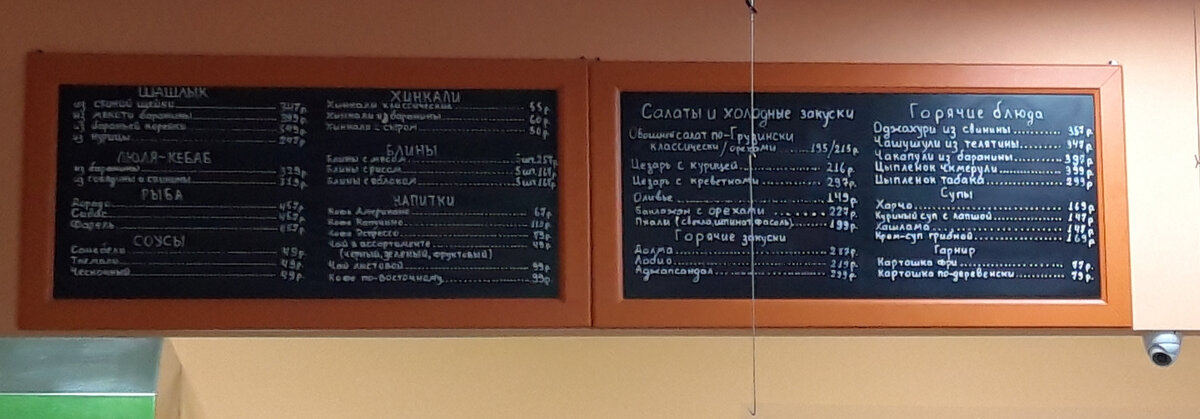 ШАШЛЫК
из свиной шейки 347р.
из мякоти баранины 399р.
из бараньей корейки 549р.
из курицы 247р.
ЛЮЛЯ-КЕБАБ
из баранины 329р.
из говядины и свинины 319р.
РЫБА
Дорадо 457р.
Сибас 457р.
Форель 457р.
СОУСЫ
Сацебели 49р.
Ткемали 49р.
Чесночный 49р.
ХИНКАЛИ
Хинкали классические 55р.
Хинкали из баранины 60р.
Хинкали с сыром 50р.
БЛИНЫ
Блины с мясом 3шт.
Блины с рисом 3шт.
Блины с яблоком 3шт.
НАПИТКИ
Кофе Американо 67р.
Кофе Капучино
Кофе Эспрессо
Чай в ассортименте 49р.
(черный, зеленый, фруктовый)
Чай листовой 99р.
Кофе по-восточному 99р.
Салаты и холодные закуски
Овощной салат по-Грузински
классически/орехами 195/215р.
Цезарь с курицей 216р.
Цезарь с креветками 297р.
Оливье 149р.
Баклажан с орехами 227р.
Пхали (свекла, шпинат, фасоль) 199р.
Горячие закуски
Долма 287р.
Лобио 219р.
Аджапсандал 299р.
Горячие блюда
Оджахури из свинины 357р.
Чашушули из телятины 347р.
Чакапули из баранины 397р.
Цыпленок чкмерули 399р.
Цыпленок табака 299р.
Супы
Харчо 169р.
Куриный суп с лапшой 147р.
Хашлама 147р.
Крем-суп грибной 169р.
Гарнир
Картошка фри 77р.
Картошка по-деревенски 79р.